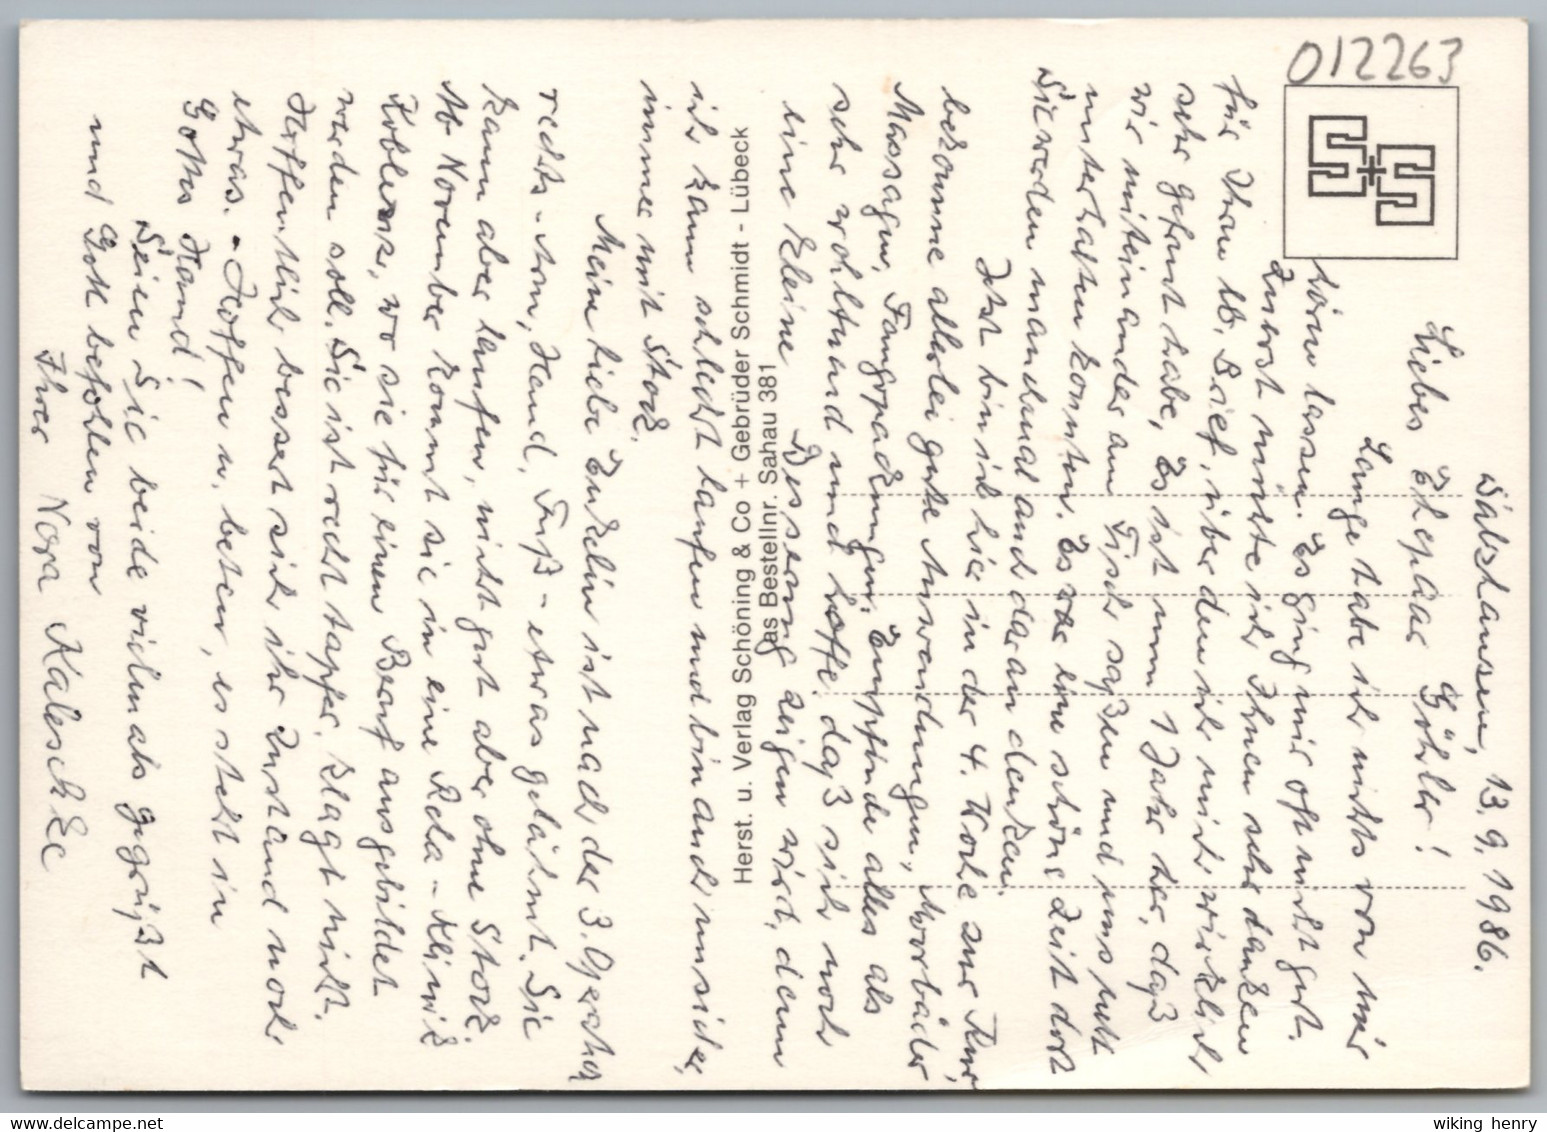 012263
S+S
Salzhausen, 13.9.1986.
Liebes Ehepaar Göhler!
Lange habe ich nichts von mir
hören lassen. Es ging mir oft nicht gut.
Zuerst möchte ich Ihnen sehr danken
für Ihren lb. Brief, über den ich mich wirklich
sehr gefreut habe. Es ist nun 1 Jahr her, daß
wir miteinander am Tisch saßen und uns nett
unterhalten konnten. Es war eine schöne Zeit dort
Sie werden manchmal auch daran denken.
Jetzt bin ich hier in der 4. Woche zur Kur,
bekomme allerlei gute Anwendungen, Moorbäder
Massagen, Fangopackungen. Empfinde alles als
sehr wohltuend und hoffe, daß sich noch
eine kleine Besserung zeigen wird, denn
ich kann schlecht laufen und bin auch unsicher,
immer mit Stock.
Meine liebe Enkelin ist nach der 3. Operation
rechts - Arm, Hand, Fuß - etwas gelähmt. Sie
kann aber laufen, nicht gut aber ohne Stock.
Ab November kommt sie in eine Reha-Klinik
Koblenz, wo sie für einen Beruf ausgebildet
werden soll. Sie ist recht tapfer, klagt nicht.
Hoffentlich bessert sich ihr Zustand noch
etwas. - Hoffen u. beten, es steht in
Gottes Hand!
Seien Sie beide vielmals gegrüßt
und Gott befohlen von
Ihrer Nora Kaleschke
Herst. u. Verlag Schöning & Co + Gebrüder Schmidt - Lübeck
Jas Bestellnr. Sahau 381
wiking henry